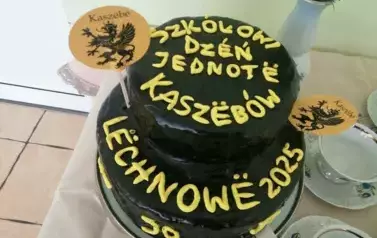 Kaszëbë
SZKÓŁOWI
DZÉŃ
JEDNOTË
KASZËBÓW
LËCHNOWË 2025
39